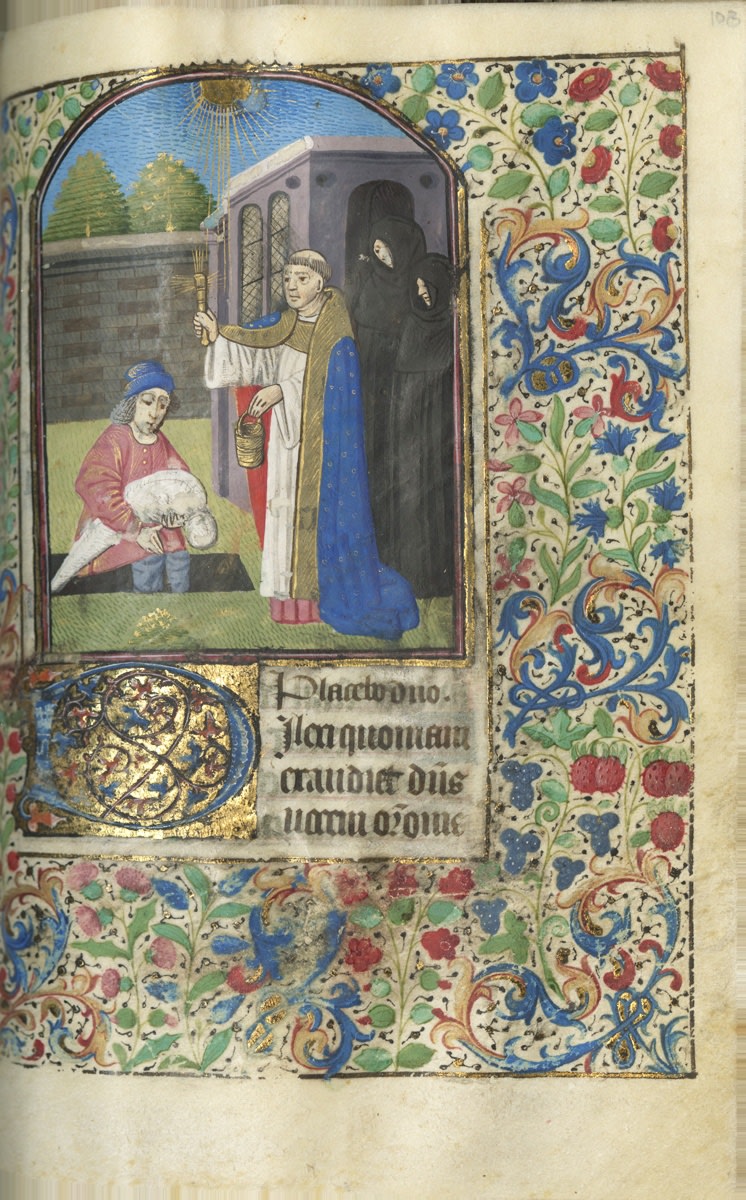 103
Placebo dn̄o.
Dilexi quoniam
exaudiet dn̄s
uocem orōnis